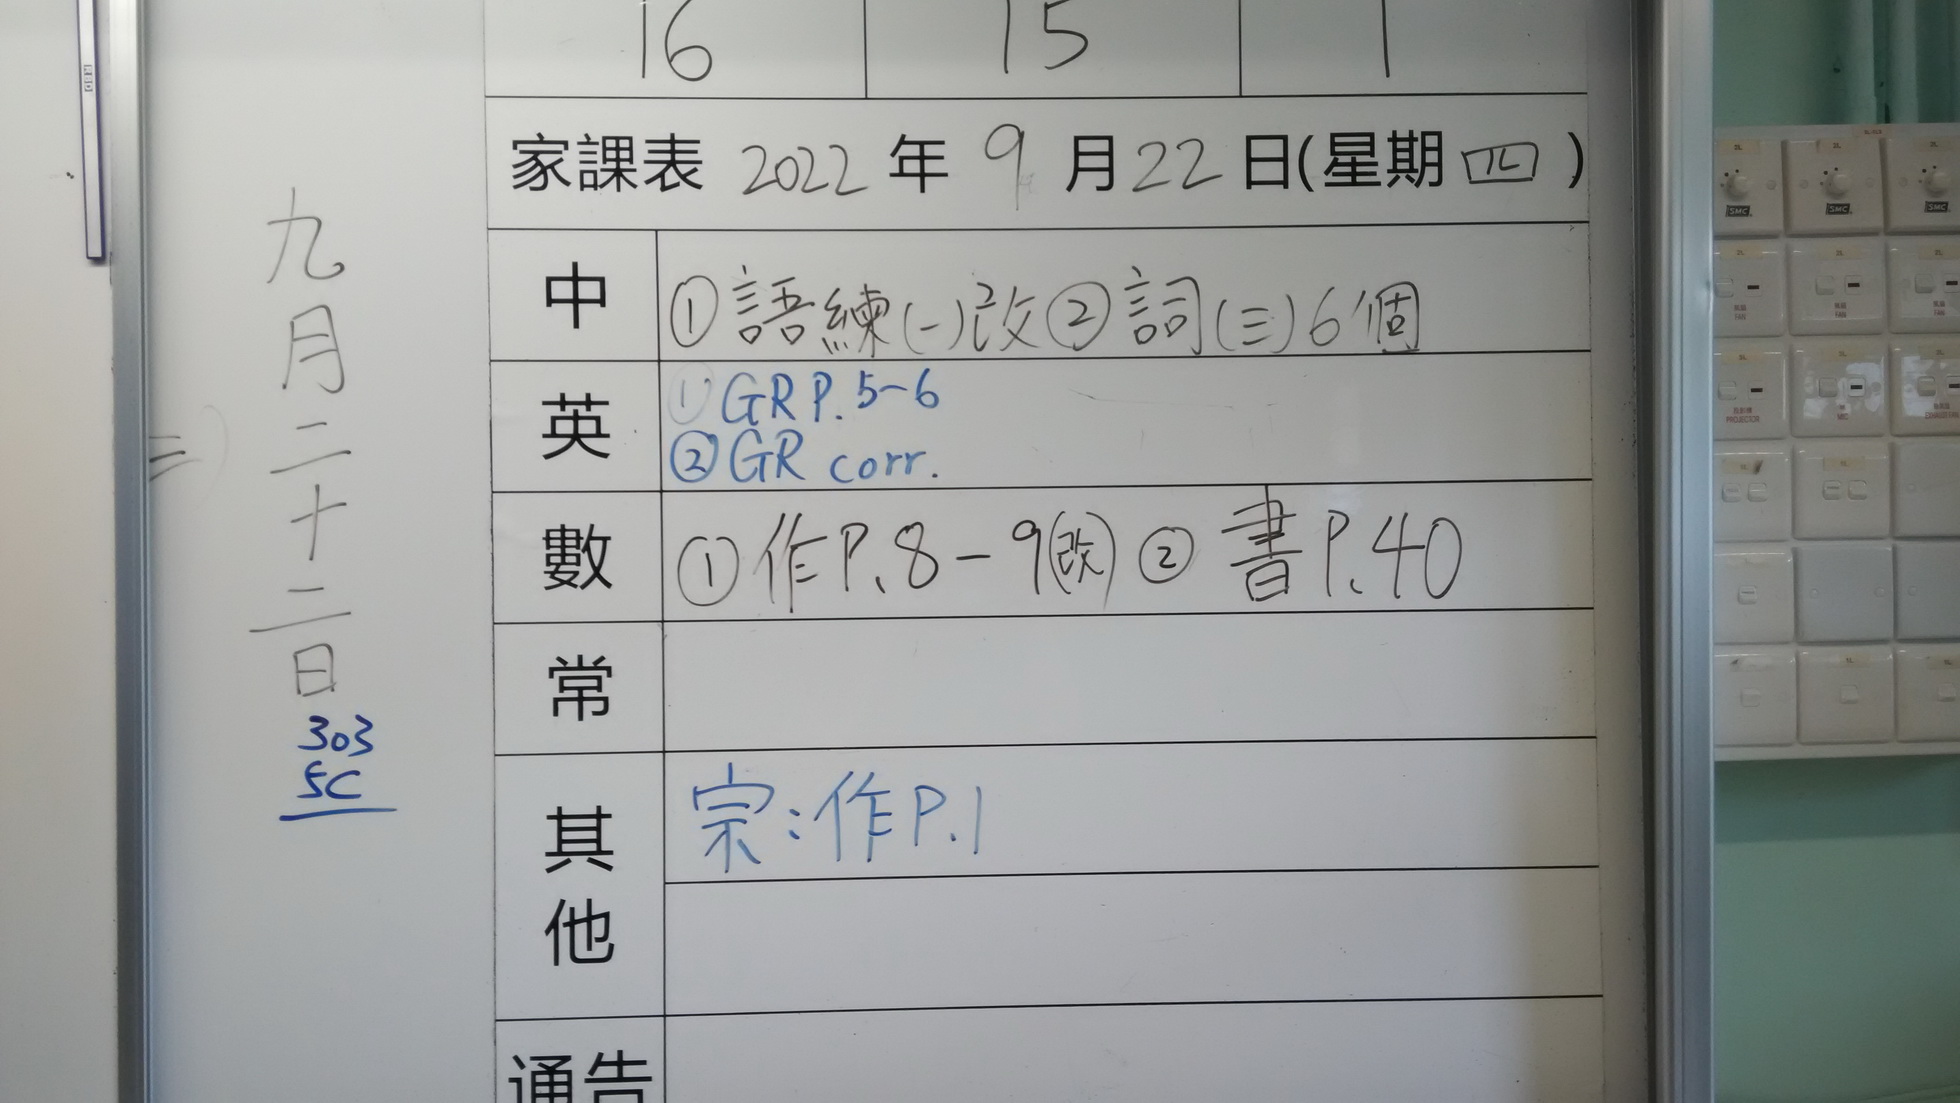 16 15 1
家課表 2022 年 9 月 22 日(星期 四 )
中 ①語練(一)²改 ②詞(三)6個
英 ①GR P. 5-6
②GR corr.
數 ①作P. 8-9(改) ② 書P. 40
常
其他 宗:作P. 1
通告
九月二十二日
303
5C
SMC
SMC
SMC
FAN
FAN
FAN
PROJECTOR
MIC